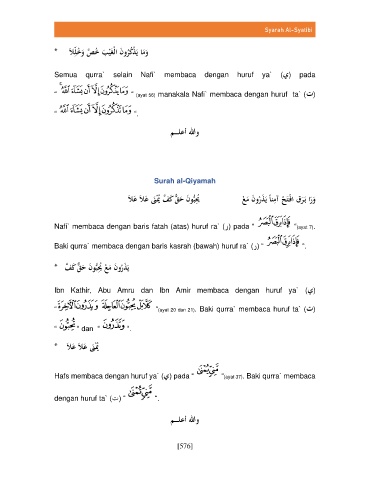 Syarah Al-Syatibi
* وَمَا يَذْكُرُونَ الْغَيْبَ خُصَّ وَخَلِّلَا
Semua qurra` selain Nafi` membaca dengan huruf ya` (ي) pada
“ وَمَا يَذْكُرُونَ إِلَّآ أَن يَشَآءَ ٱللَّهُ ” (ayat 56) manakala Nafi` membaca dengan huruf ta` (ت)
“ وَمَا تَذْكُرُونَ إِلَّآ أَن يَشَآءَ ٱللَّهُ ”.
والله أعلم
Surah al-Qiyamah
وَرَا بَرَقَ افْتَحْ آمِنًا يَذَرُونَ مَعْ يُحِبُّونَ حَقٌّ كَفَّ يُمْنَى عَلَا عَلَا
Nafi` membaca dengan baris fatah (atas) huruf ra` (ر) pada “ فَإِذَا بَرَقَ ٱلْبَصَرُ ”(ayat 7).
Baki qurra` membaca dengan baris kasrah (bawah) huruf ra` (ر) “ فَإِذَا بَرِقَ ٱلْبَصَرُ ”.
* يَذَرُونَ مَعْ يُحِبُّونَ حَقٌّ كَفَّ
Ibn Kathir, Abu Amru dan Ibn Amir membaca dengan huruf ya` (ي)
“ كَلَّا بَلْ يُحِبُّونَ ٱلْعَاجِلَةَ وَيَذَرُونَ ٱلْأَخِرَةَ ”(ayat 20 dan 21). Baki qurra` membaca huruf ta` (ت)
“ تُحِبُّونَ ” dan “ وَتَذَرُونَ ”.
* يُمْنَى عَلَا عَلَا
Hafs membaca dengan huruf ya` (ي) pada “ مَّنِىٍّ يُمْنَىٰ ”(ayat 37). Baki qurra` membaca
dengan huruf ta` (ت) “ مَّنِىٍّ تُمْنَىٰ ”.
والله أعلم
[576]